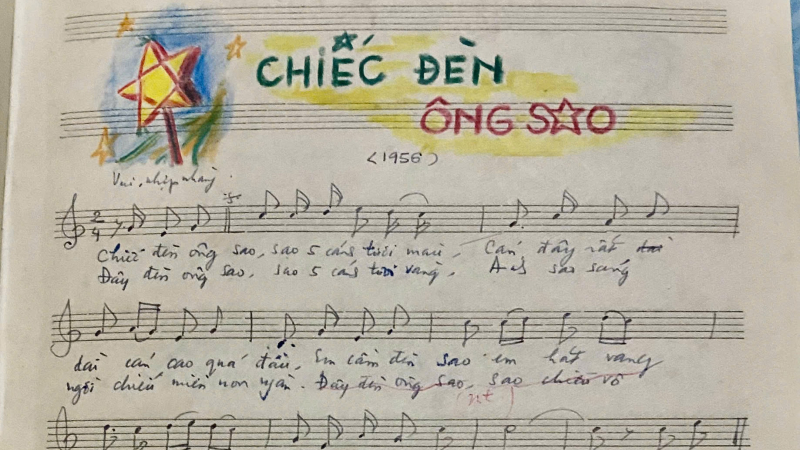 CHIẾC ĐÈN
ÔNG SAO
(1956)
Vui, nhịp nhàng.
2/4
Chiếc đèn ông sao, sao 5 cánh tươi màu, Cán đây rất dài
Đây đèn ông sao, sao 5 cánh tươi vàng, Ánh sao sáng
dài cán cao quá đầu, Em cầm đèn sao em hát vang
ngời chiếu miền non ngàn. Đây đèn ông sao, sao chiếu